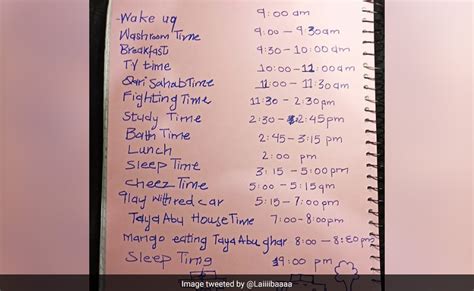 -Wake up 9:00 am
Washroom Time 9:00 - 9:30am
Breakfast 9:30 - 10:00am
TV time 10:00 - 11:00am
Qari Sahab Time 11:00 - 11:30am
Fighting Time 11:30 - 2:30pm
Study Time 2:30 - 2:45pm
Bath Time 2:45 - 3:15pm
Lunch 2:00 pm
Sleep Time 3:15 - 5:00pm
Cheez Time 5:00 - 5:15am
Play with red car 5:15 - 7:00pm
Taya Abu House Time 7:00 - 8:00pm
Mango eating Taya Abu ghar 8:00 - 8:50pm
Sleep Time 9:00 pm
Image tweeted by @Laiiiibaaaa